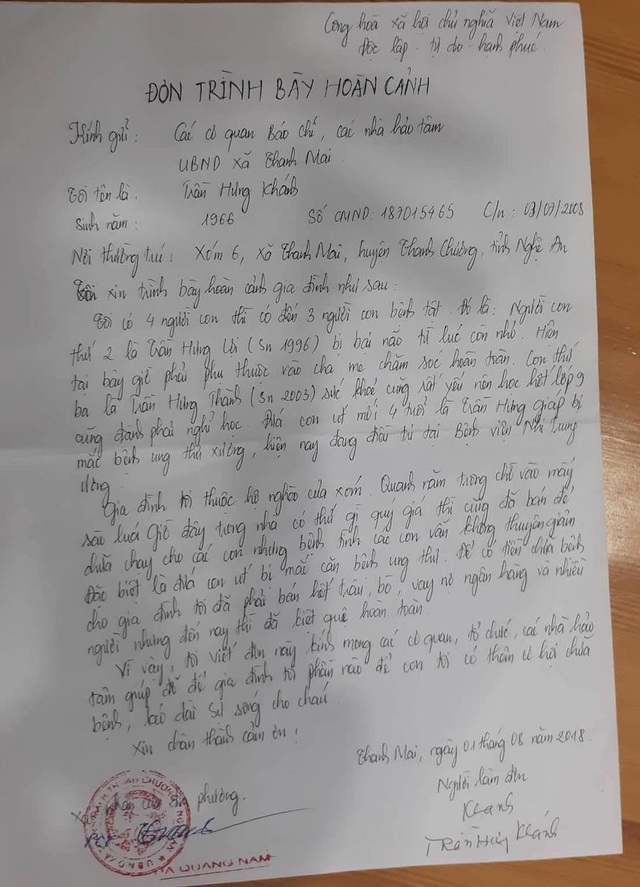 Cộng hoà xã hội chủ nghĩa Việt Nam
Độc lập - tự do - hạnh phúc.
ĐƠN TRÌNH BÀY HOÀN CẢNH
Kính gửi: Các cơ quan Báo chí, các nhà hảo tâm
UBND xã Thanh Mai.
Tôi tên là: Trần Hưng Khánh
Sinh năm: 1966 Số CMND: 187015465 C/n: 03/07/2008
Nơi thường trú: Xóm 6, xã Thanh Mai, huyện Thanh Chương, tỉnh Nghệ An
Tôi xin trình bày hoàn cảnh gia đình như sau:
Tôi có 4 người con thì có đến 3 người con bệnh tật. Đó là: Người con
thứ 2 là Trần Hưng Lợi (Sn 1996) bị bại não từ lúc còn nhỏ. Hiện
tại bây giờ phải phụ thuộc vào cha mẹ chăm sóc hoàn toàn. Con thứ
ba là Trần Hưng Thành (Sn 2003) sức khoẻ cũng rất yếu nên học hết lớp 9
cũng đành phải nghỉ học. Đứa con út mới 4 tuổi là Trần Hưng Giáp bị
mắc bệnh ung thư xương, hiện nay đang điều trị tại Bệnh viện Nhi Trung
ương.
Gia đình tôi thuộc hộ nghèo của xóm. Quanh năm trông chờ vào mấy
sào luá Giờ đây trong nhà có thứ gì quý giá thì cũng đã bán để
chữa chạy cho các con nhưng bệnh tình các con vẫn không thuyên giảm
Đặc biệt là đứa con út bị mắc căn bệnh ung thư. Để có tiền chữa bệnh
cho gia đình tôi đã phải bán hết trâu, bò, vay nợ ngân hàng và nhiều
người nhưng đến nay thì đã kiệt quệ hoàn toàn.
Vì vậy, tôi viết đơn này kính mong các cơ quan, tổ chức, các nhà hảo
tâm giúp đỡ để gia đình tôi phần nào để con tôi có thêm cơ hội chữa
bệnh, kéo dài sự sống cho cháu.
Xin chân thành cảm ơn!
Thanh Mai, ngày 01 tháng 08 năm 2018.
Người làm đơn
Khánh
Trần Hưng Khánh
phương.
QUANG NAM